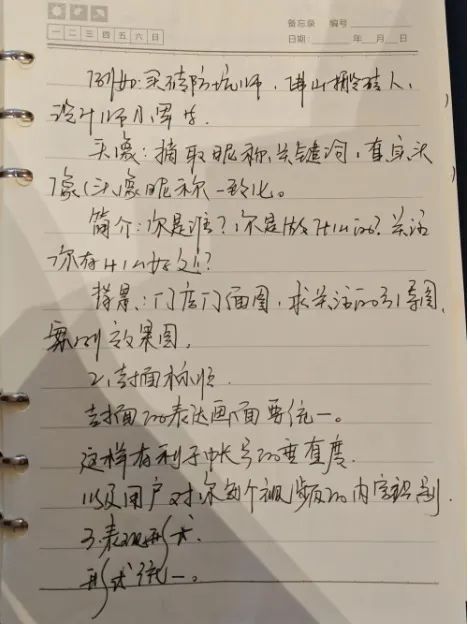 备忘录 编号
一 二 三 四 五 六 日
日期: 年 月 日
例如:买砖防坑师,佛山搬砖人,
设计师小军哥.
头像:摘取昵称关键词,真实头
像(头像昵称一致化。
简介:你是谁?你是做什么的?关注
你有什么好处?
背景:门店门面图,求关注的引导图,
案例效果图.
2,封面标版
封面的表达画面要统一。
这样有利于账号的垂直度.
以及用户对你每个视频的内容识别.
3.表现形式.
形式统一。